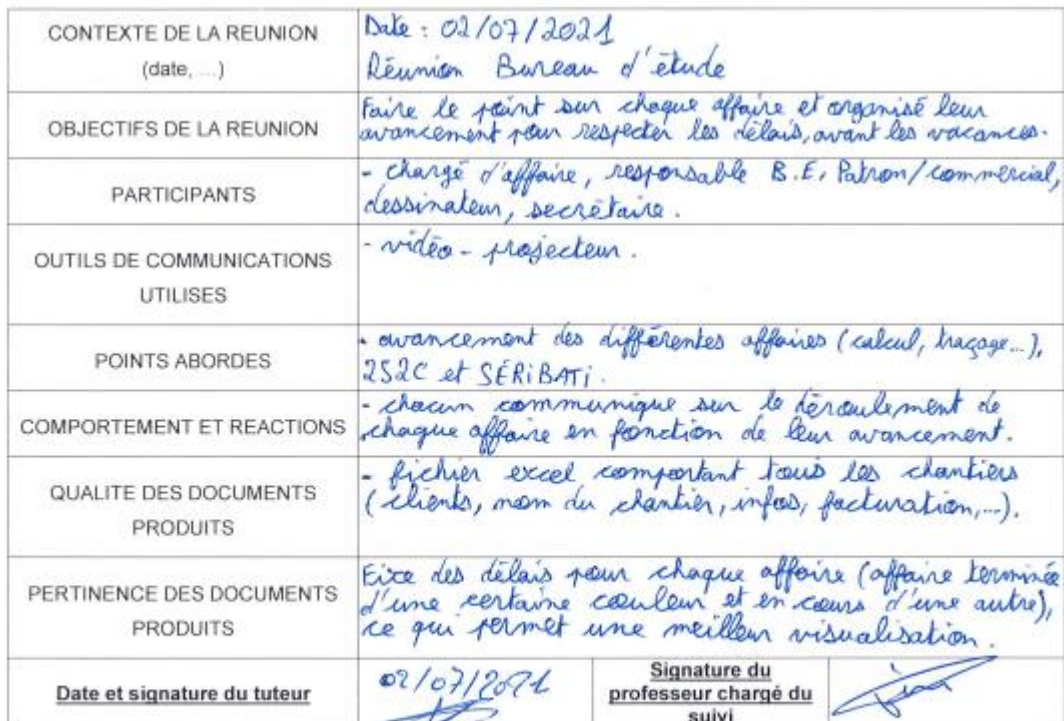 CONTEXTE DE LA REUNION
(date, ...)
Date : 02/07/2021
Réunion Bureau d'étude
OBJECTIFS DE LA REUNION
Faire le point sur chaque affaire et organisé leur
avancement pour respecter les délais, avant les vacances.
PARTICIPANTS
- chargé d'affaire, responsable B.E, Patron/commercial,
dessinateur, secrétaire.
OUTILS DE COMMUNICATIONS
UTILISES
- vidéo-projecteur.
POINTS ABORDES
- avancement des différentes affaires (calcul, traçage...),
2S2C et SÉRiBATi.
COMPORTEMENT ET REACTIONS
- chacun communique sur le déroulement de
chaque affaire en fonction de leur avancement.
QUALITE DES DOCUMENTS
PRODUITS
- fichier excel comportant tous les chantiers
(clients, nom du chantier, infos, facturation,...).
PERTINENCE DES DOCUMENTS
PRODUITS
Fixe des délais pour chaque affaire (affaire terminée
d'une certaine couleur et en cours d'une autre),
ce qui permet une meilleur visualisation.
Date et signature du tuteur
02/07/2021
Signature du
professeur chargé du
suivi